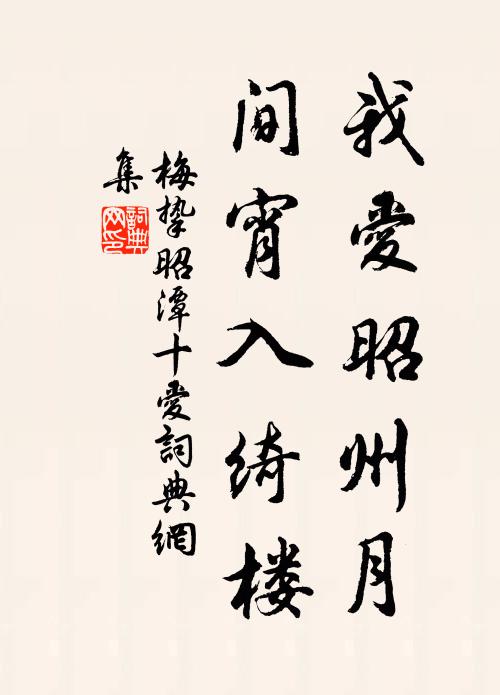 我愛昭州月
间宵入绮楼
梅挚昭潭十愛詞典網
集
詞典網印